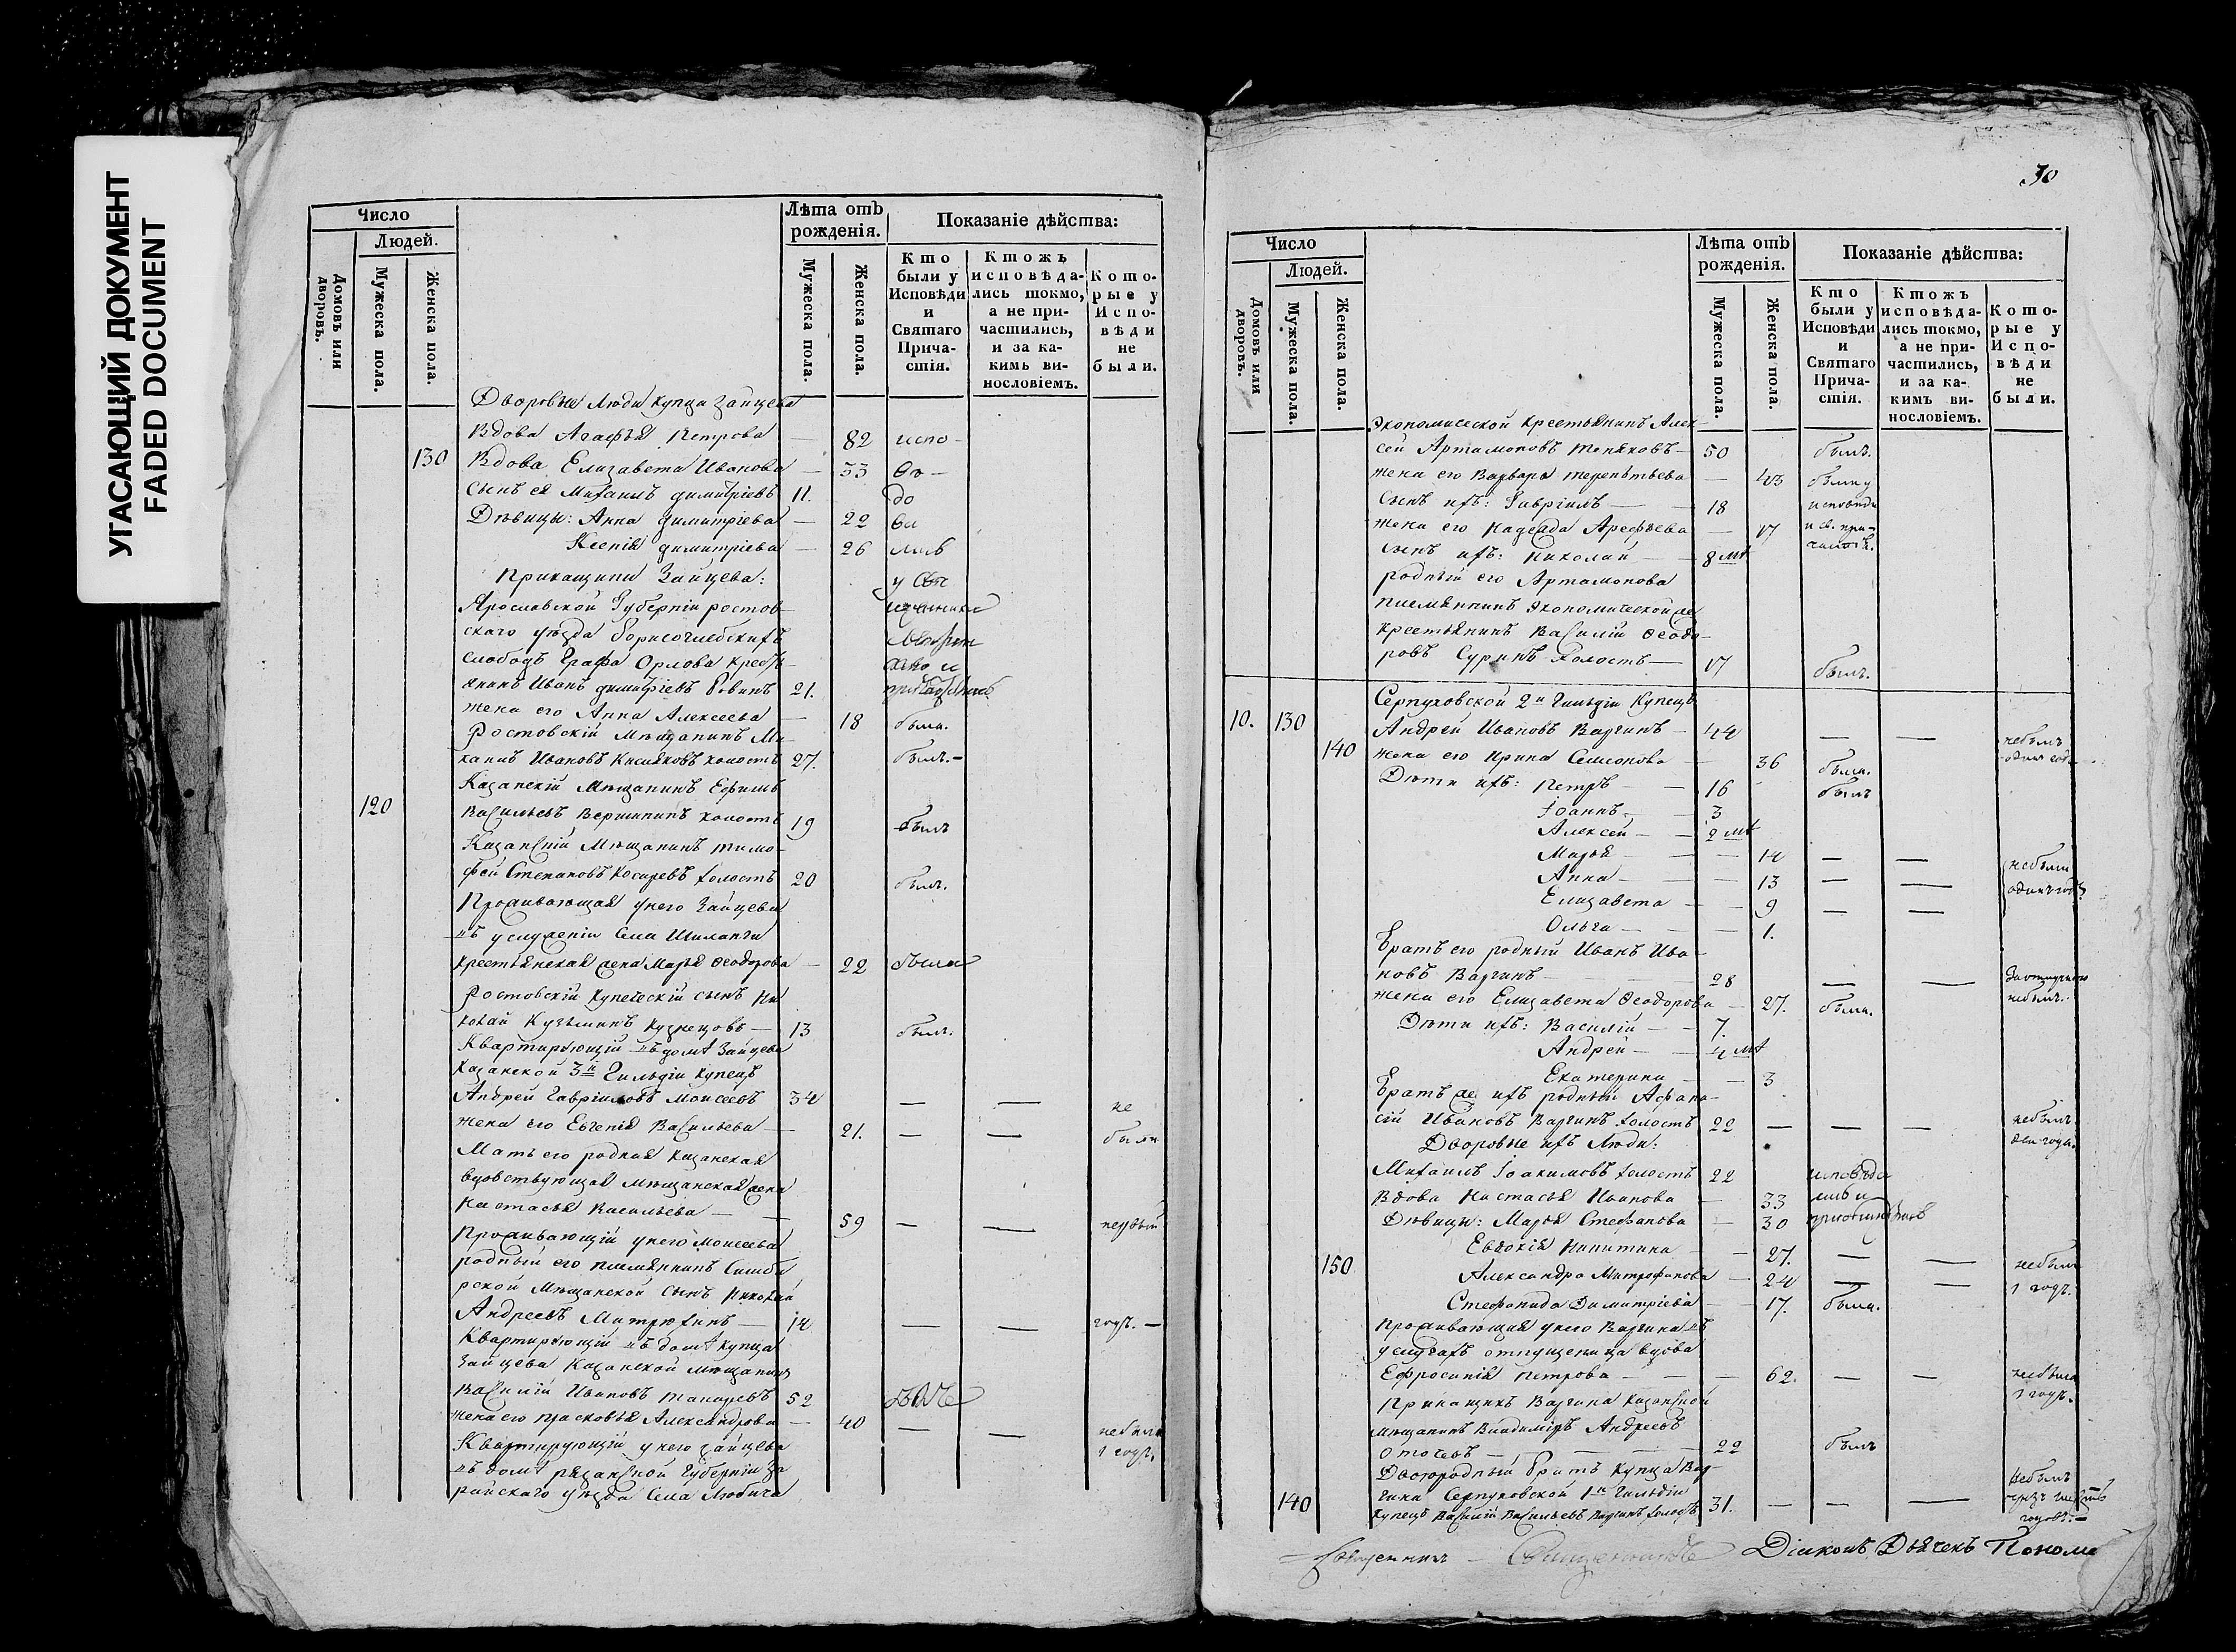 УГАСАЮЩИЙ ДОКУМЕНТ
FADED DOCUMENT
Число
Людей.
Домовъ или дворовъ.
Мужеска пола.
Женска пола.
Лѣта отъ рожденія.
Мужеска пола.
Женска пола.
Показаніе дѣйства:
Кто были у Исповѣди и Святаго Причастія.
Ктожъ исповѣдались токмо, а не причастились, и за какимъ винословіемъ.
Которые у Исповѣди не были.
Дворовые люди купца Зайцева
Вдова Агафья Петрова 82 испо-
130 Вдова Елизавета Иванова — 33 вѣ-
Сынъ ея Михаилъ Димитріевъ 11. до
Дѣвицы: Анна Димитріева — 22 ва
Ксенія Димитріева — 26 лись
Прикащики Зайцева:
Ярославской Губерніи Ростов-
скаго уѣзда Борисоглебскихъ
слободъ Графа Орлова крестья-
янинъ Иванъ Димитріевъ 21.
жена его Анна Алексеева — 18 была.
Ростовскій мѣщанинъ Ми-
хаилъ Ивановъ холостъ 27. былъ.-
Казанскій мѣщанинъ Ефимъ
120 Васильевъ Вершининъ холостъ 19 былъ
Казанскій мѣщанинъ Тимо-
фей Степановъ Косаревъ холостъ 20 былъ.
Проживающая у него Зайцева
въ услуженіи села Шиланги
крестьянская жена Марья Феодорова — 22 была
Ростовскій купеческій сынъ Ни-
колай Кузьминъ Кузнецовъ — 13 былъ.
Квартирующій въ домѣ Зайцева
Казанской 3й Гильдіи купецъ
Андрей Гавріиловъ Моисеевъ 34 — — не
жена его Евгенія Васильева — 21. — — были
Мать его родная Казанская
вдовствующая мѣщанская жена
Настасья Васильева — — 59 — — первый
Проживающій у него Моисеева
родный его племянникъ Симби-
рской мѣщанской сынъ Николай
Андреевъ Митрюхинъ — 14 — — годъ. —
Квартирующій въ домѣ купца
Зайцева Казанской мѣщанинъ
Василій Ивановъ 52 былъ
жена его Прасковья Александрова — 40 — — не была
Квартирующій у него Зайцева 1 годъ.
въ домѣ Рязанской Губерніи За-
райскаго уѣзда села Любича
30
Число
Людей.
Домовъ или дворовъ.
Мужеска пола.
Женска пола.
Лѣта отъ рожденія.
Мужеска пола.
Женска пола.
Показаніе дѣйства:
Кто были у Исповѣди и Святаго Причастія.
Ктожъ исповѣдались токмо, а не причастились, и за какимъ винословіемъ.
Которые у Исповѣди не были.
Экономической крестьянинъ Алек-
сей Артамоновъ — 50 былъ.
жена его Варвара Терентьева — 43 были у
Сынъ ихъ: Гавріилъ — — 18 исповѣди
жена его Надежда Арефьева — 17 и св. при-
сынъ ихъ: Николай — — 8 мѣ
родный его Артамонова
племянникъ экономической же
крестьянинъ Василій Феодо-
ровъ Суринъ холостъ — 17 былъ.
Серпуховской 2й Гильдіи купецъ
10. 130 Андрей Ивановъ Варгинъ — 44 — — не былъ
140 жена его Ирина Семионова — 36 была. одинъ годъ
Дѣти ихъ: Петръ — — 16 былъ
Іоаннъ — — 3
Алексей — — 2 мѣ
Марья — — — 14 — — не были
Анна — — — 13 — — одинъ годъ
Елизавета — — 9 — —
Ольга — — — 1.
Братъ его родный Иванъ Ива-
новъ Варгинъ — — 28 — — За отлучкою
жена его Елизавета Феодорова — 27. была. не былъ.
Дѣти ихъ: Василій — — 7.
Андрей — — 4 мѣ
Екатерина — — 3
Братъ же ихъ родный Афана-
сій Ивановъ Варгинъ холостъ 22 — — — не былъ
Дворовые ихъ люди: два года.
Михаилъ Іоакимовъ холостъ 22 исповѣда
Вдова Настасья Иванова — 33 лись и
Дѣвицы: Марья Стефанова — 30
Евдокія Никитина — — 27. — — не были
150 Александра Митрофанова — 24 — — 1 годъ.
Стефанида Димитріева — — 17. была.
Проживающая у него Варгина въ
услугахъ отпущеница вдова
Ефросинія Петрова — — — 62. — — не была
Прикащикъ Варгина Казанской 1 годъ.
мѣщанинъ Владиміръ Андреевъ
— — — — 22 былъ
Двоюродный братъ купца Вар-
140 гина Серпуховской 1й Гильдіи не былъ
купецъ Василій Васильевъ Варгинъ холостъ 31. — — —
годовъ.—
Священникъ Діаконъ Дьячекъ Поном